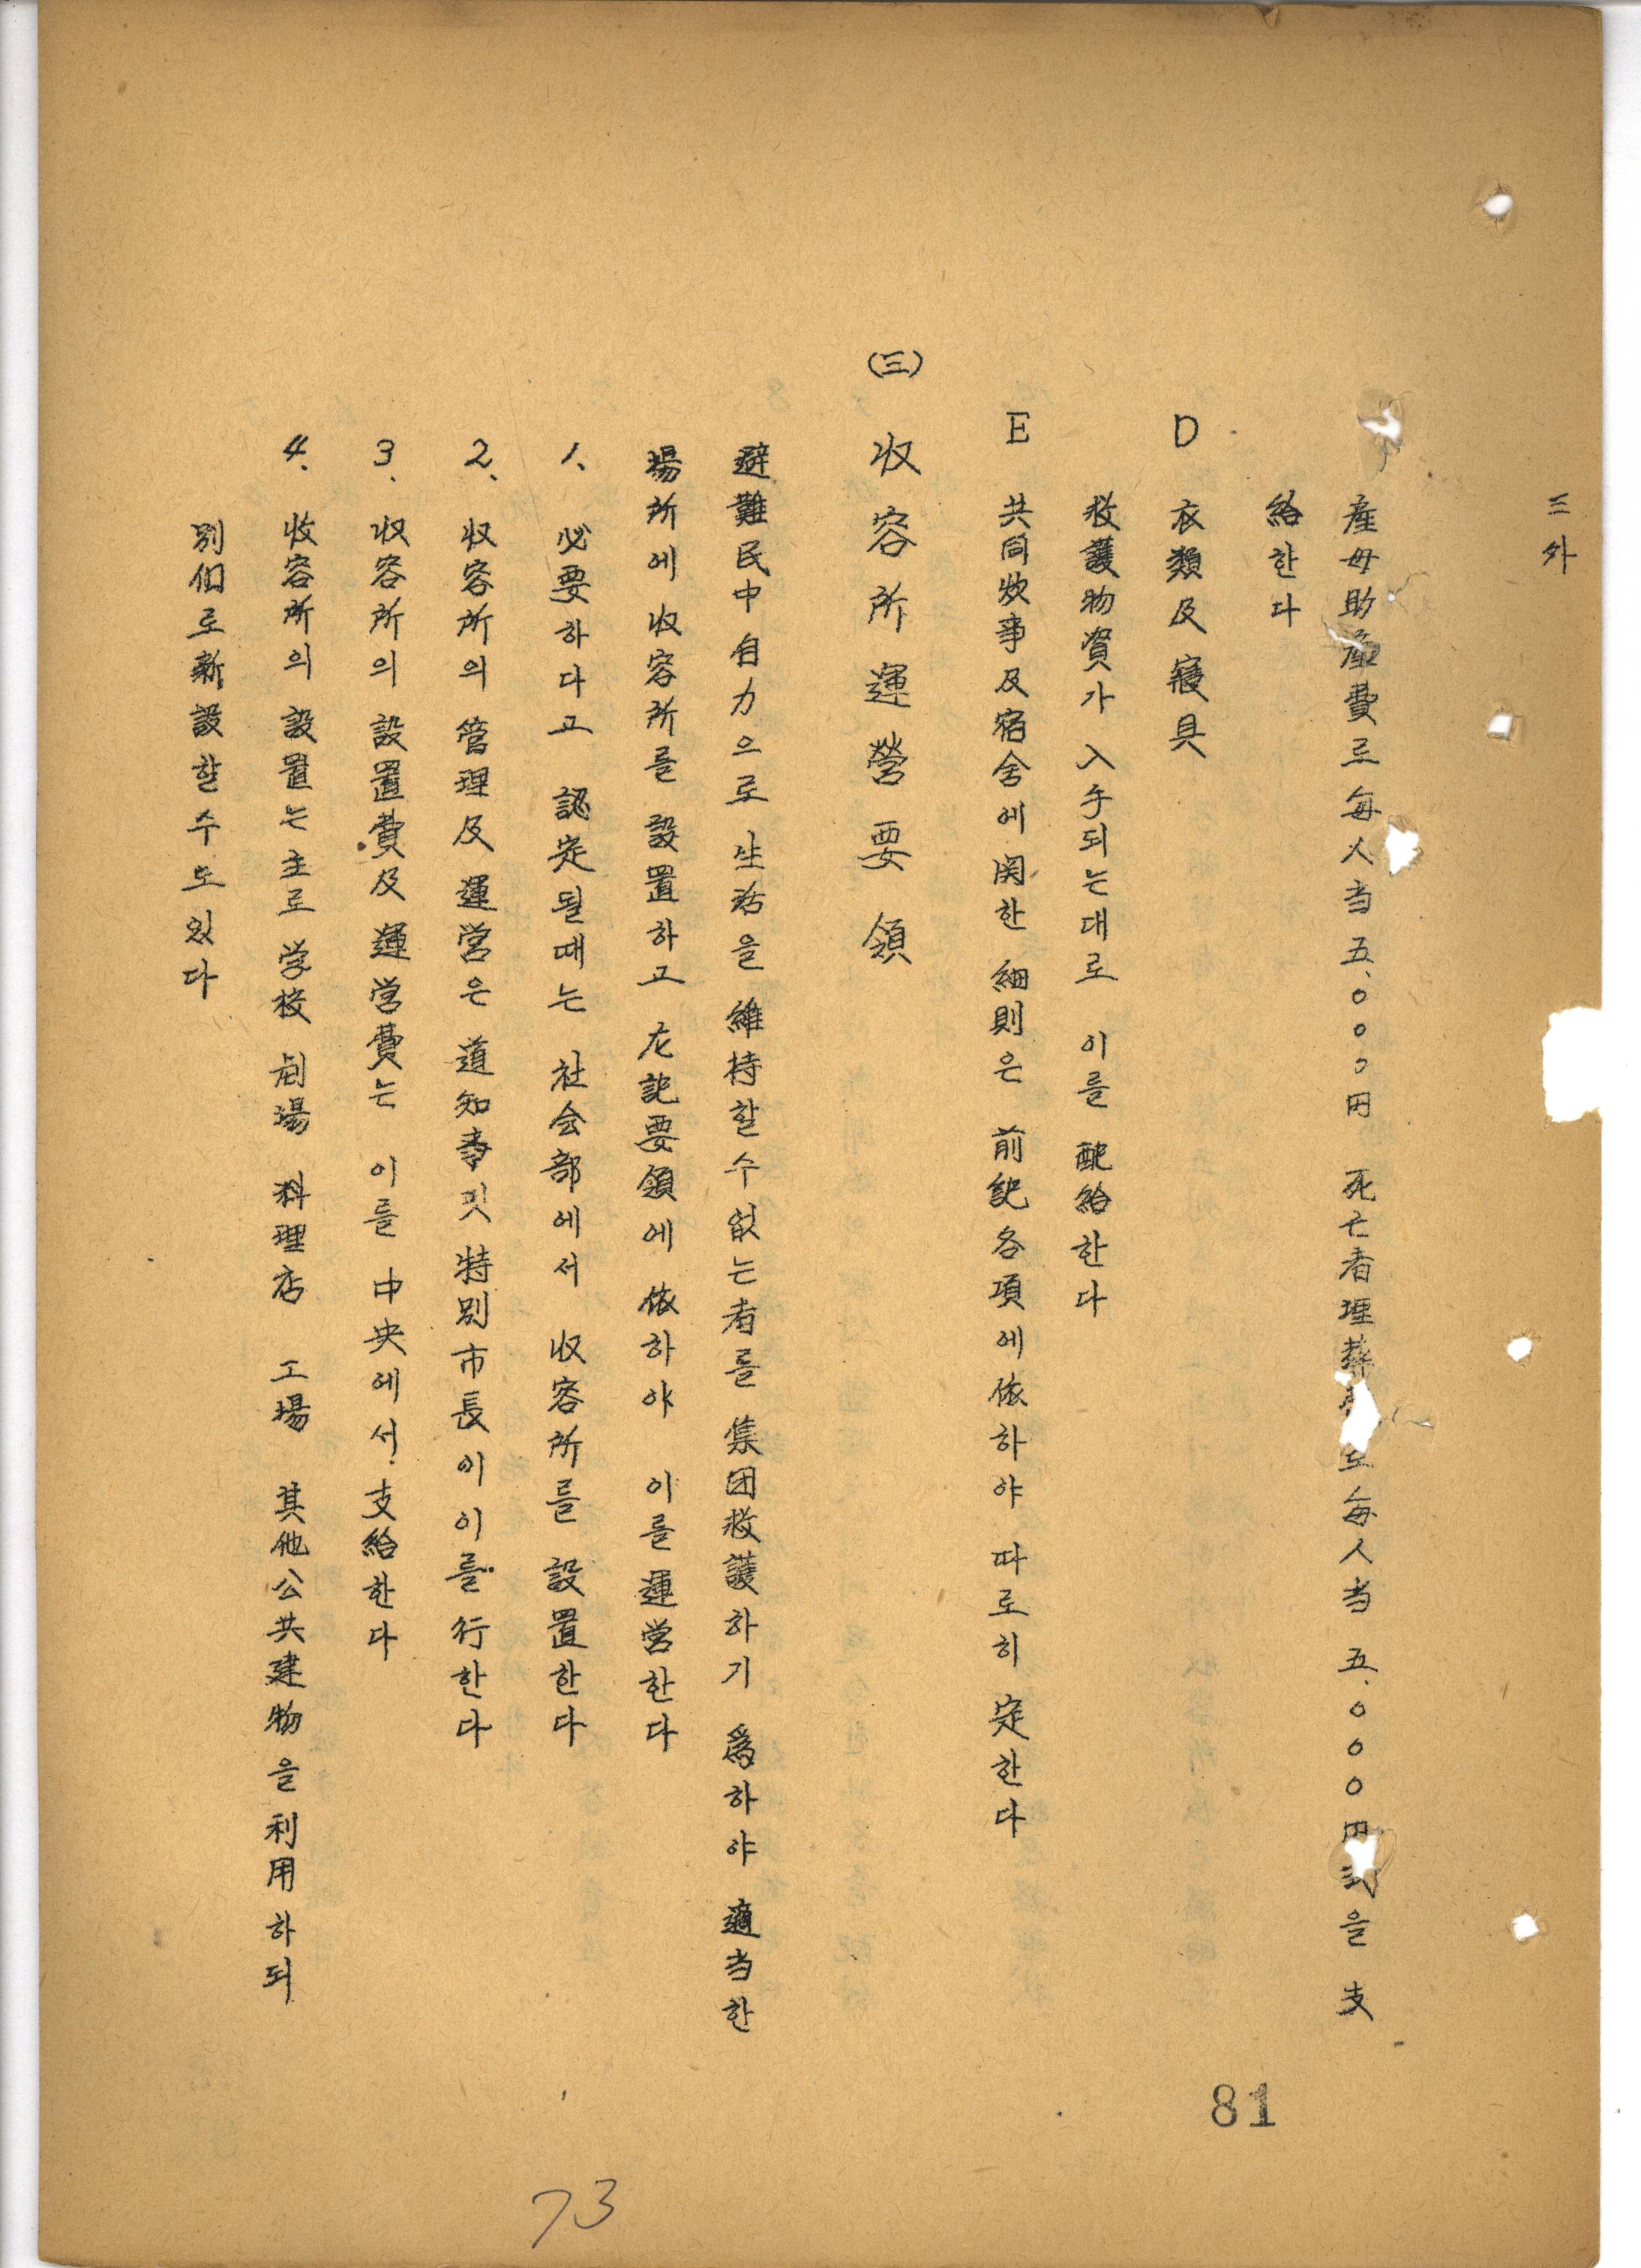 三外
産母助産費로每人当 五、〇〇〇円 死亡者埋葬 로每人当 五、〇〇〇円 을 支
給한다
D 衣類及寢具
救護物資가 入手되는대로 이를 配給한다
E 共同炊事及宿舍에 関한 細則은 前記各項에依하야 따로히 定한다
(三) 収容所運營要領
避難民中自力으로 生活을 維持할수없는者를 集団救護하기 爲하야 適当한
場所에 収容所를 設置하고 左記要領에 依하야 이를運営한다
1、必要하다고 認定될때는 社会部에서 収容所를 設置한다
2、収容所의 管理及運営은 道知事및 特別市長이 이를 行한다
3、収容所의 設置費及運営費는 이를 中央에서 支給한다
4、收容所의 設置는主로 学校 劇場 料理店 工場 其他公共建物을利用하되
別個로新設할수도있다
81
73